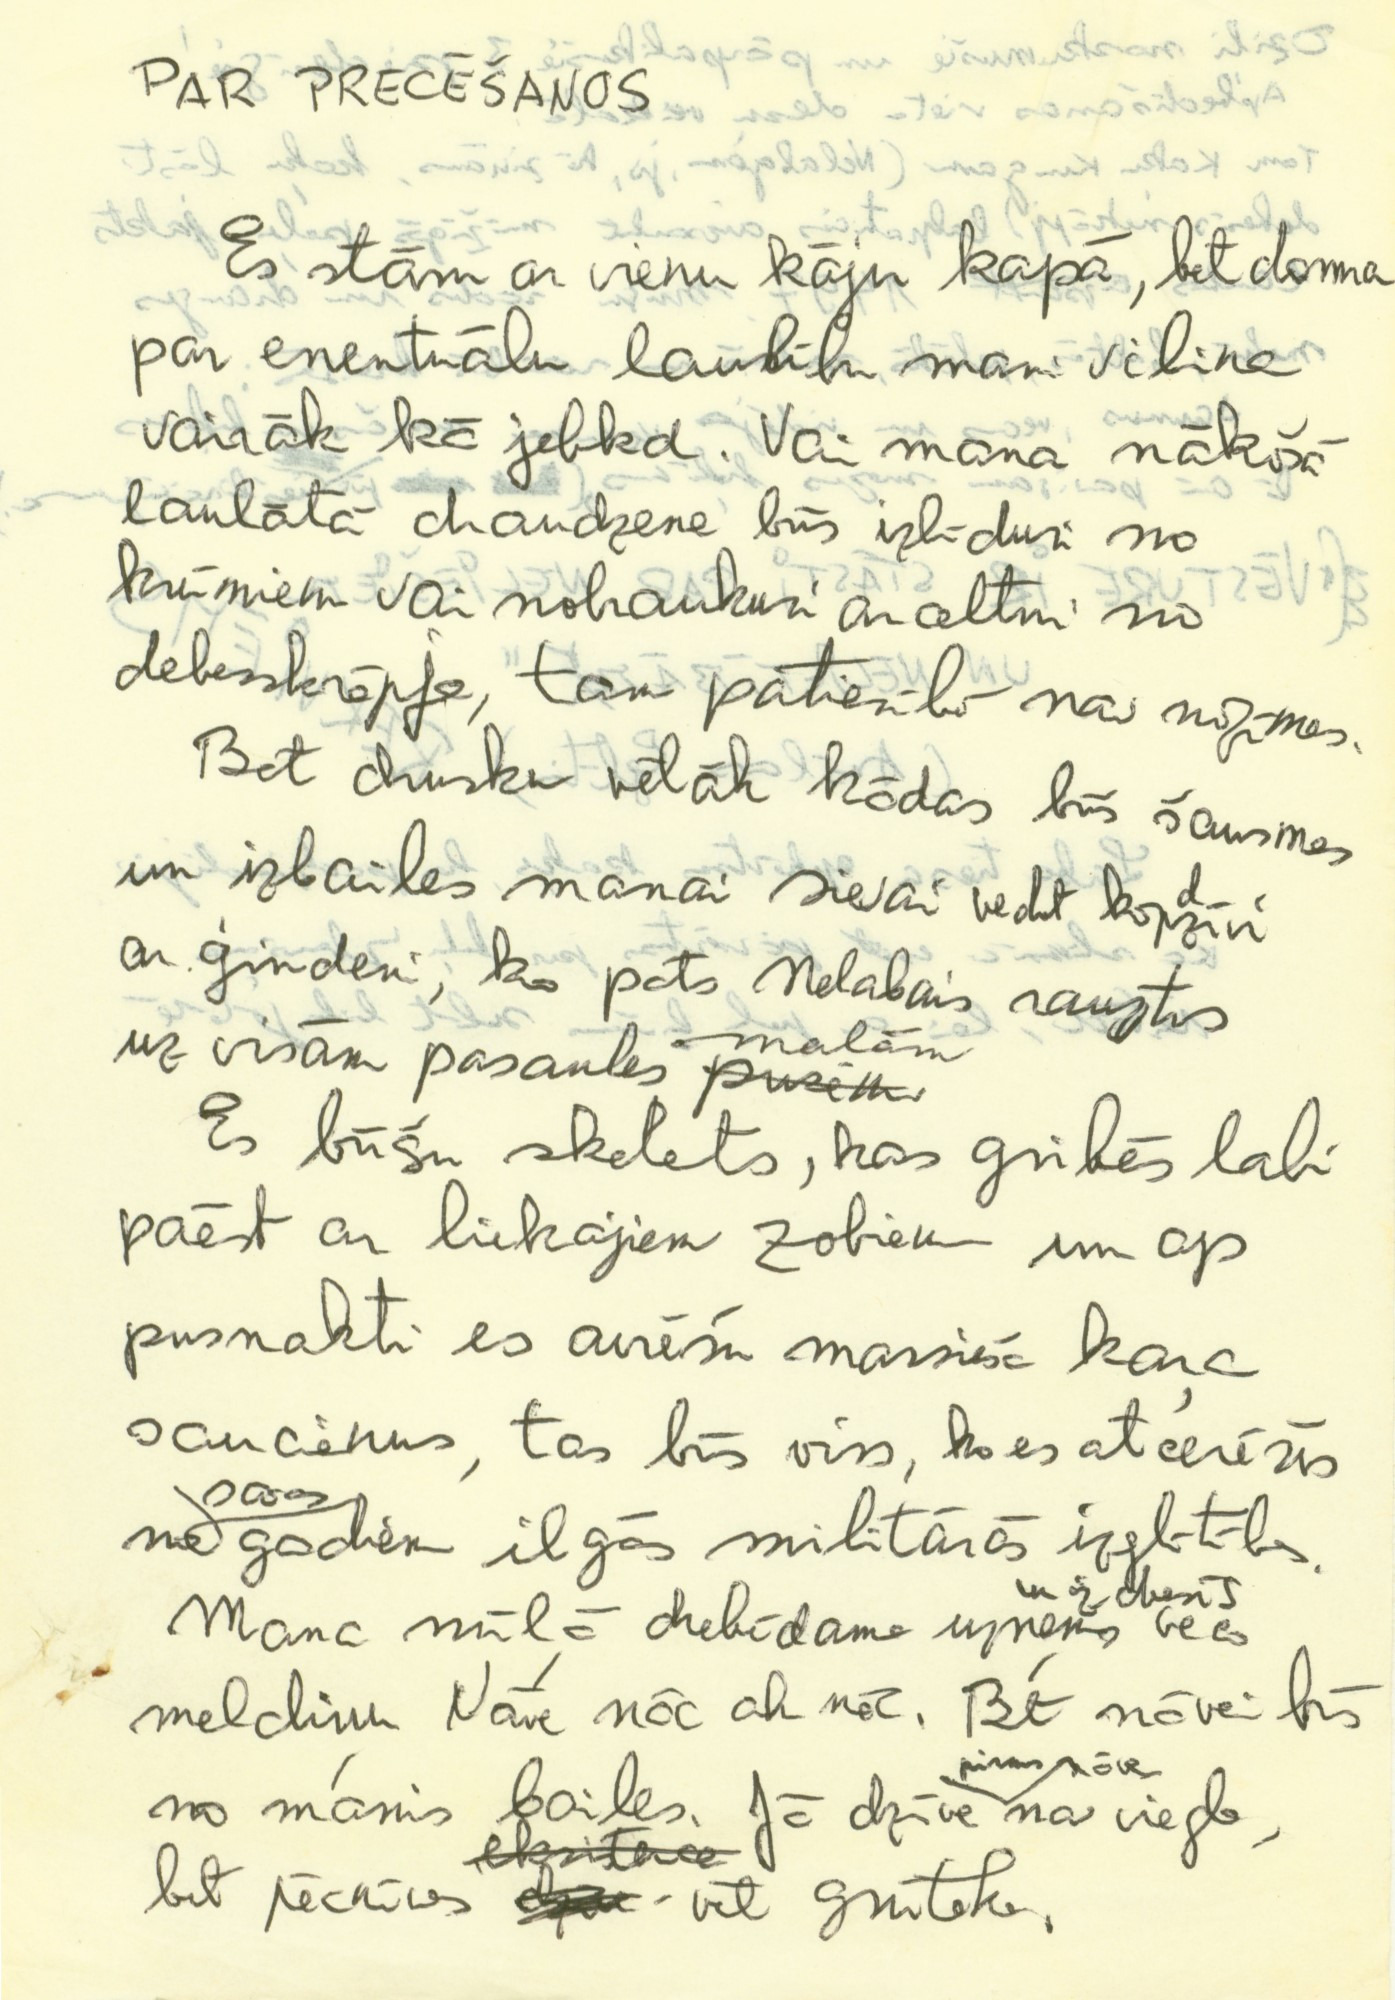 PAR PRECĒŠANOS
Es stāvu ar vienu kāju kapā, bet doma
par eventuālu laulību mani vilina
vairāk kā jebkad. Vai mana nākošā
laulātā draudzene būs izlīdusi no
krūmiem vai nobraukusi ar liftu no
debesskrāpja, tam patiesībā nav nozīmes.
Bet drusku vēlāk kādas būs šausmes
un izbailes manai sievai vedot kopdzīvi
ar ģindeni, ko pats Nelabais raustīs
uz visām pasaules malām
Es būšu skelets, kas gribēs labi
paēst ar liekajiem zobiem un ap
pusnakti es aurēšu maršus kaŗa
saucienus, tas būs viss, ko es atcerēšos
no savas gadiem ilgās militārās izglītības.
Mana mūlā drebēdama uzņems un izdvesīs veco
meldiņu Nāve nāc ak nāc. Bet nāvei būs
no manis bailes. Jā dzīve pirms nāves nav viegla,
bet pēcnāves eksistence vēl grūtāka.